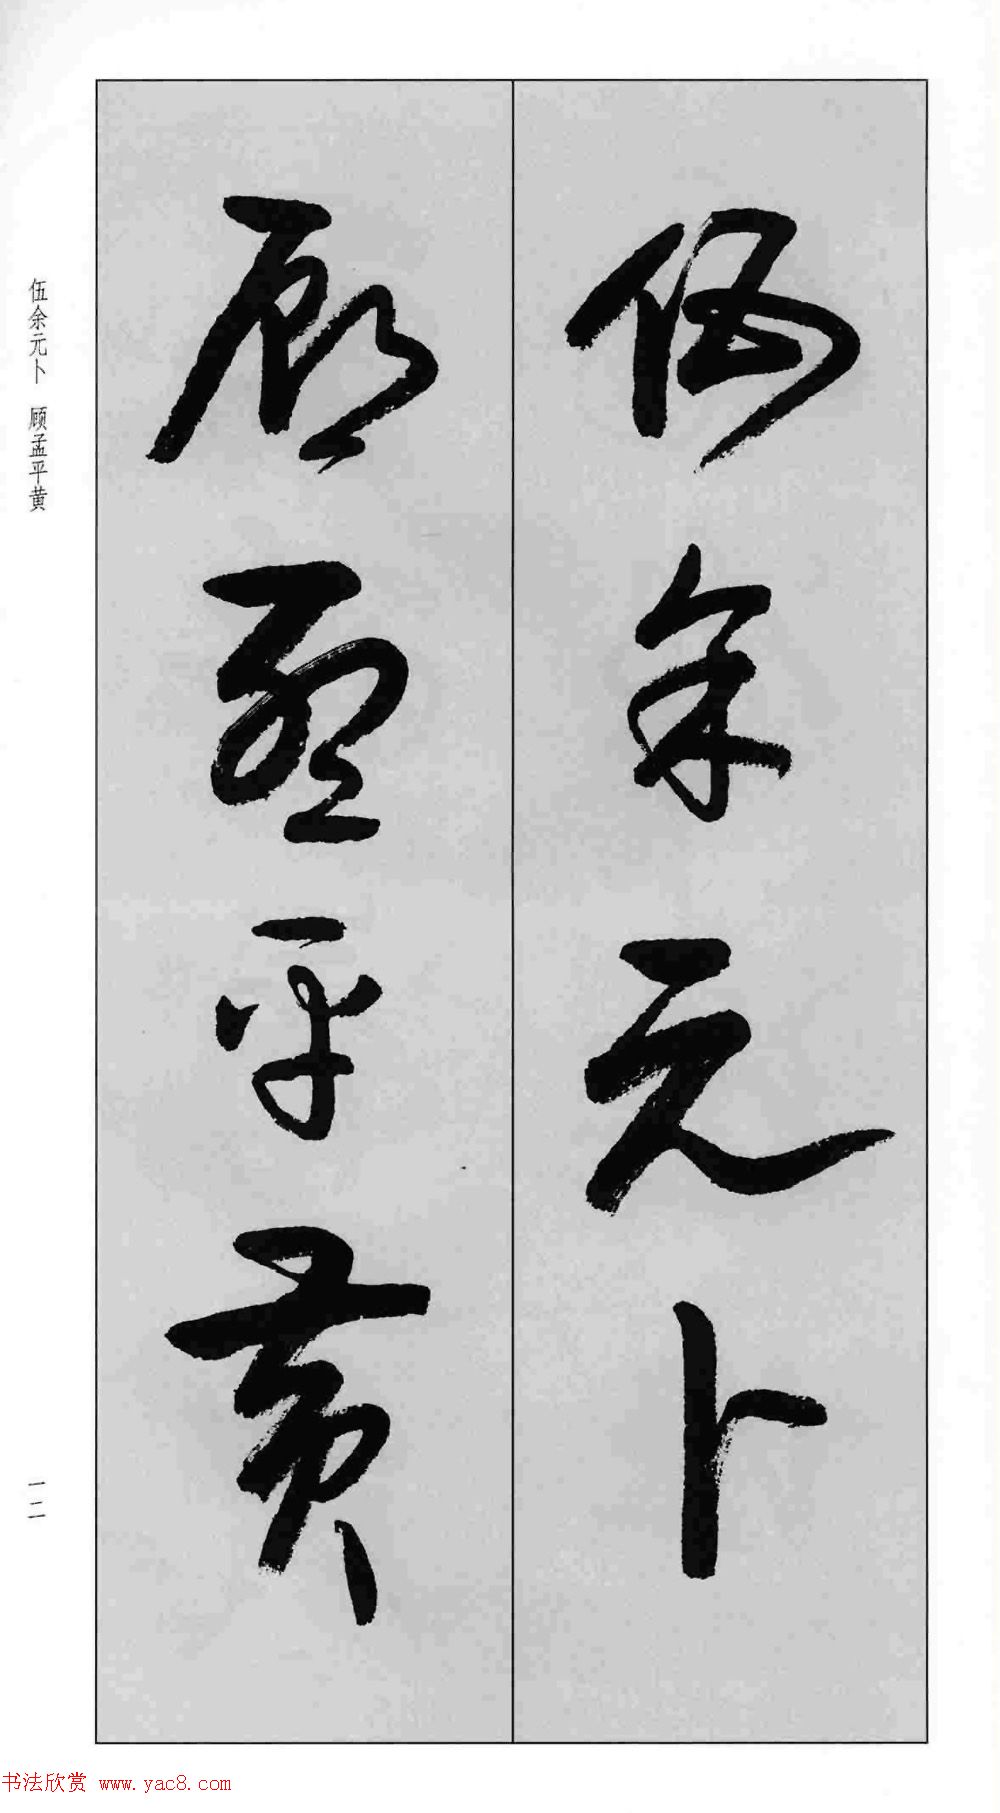 伍余元卜
顾孟平黄
伍余元卜 顾孟平黄
一二
书法欣赏 www.yac8.com